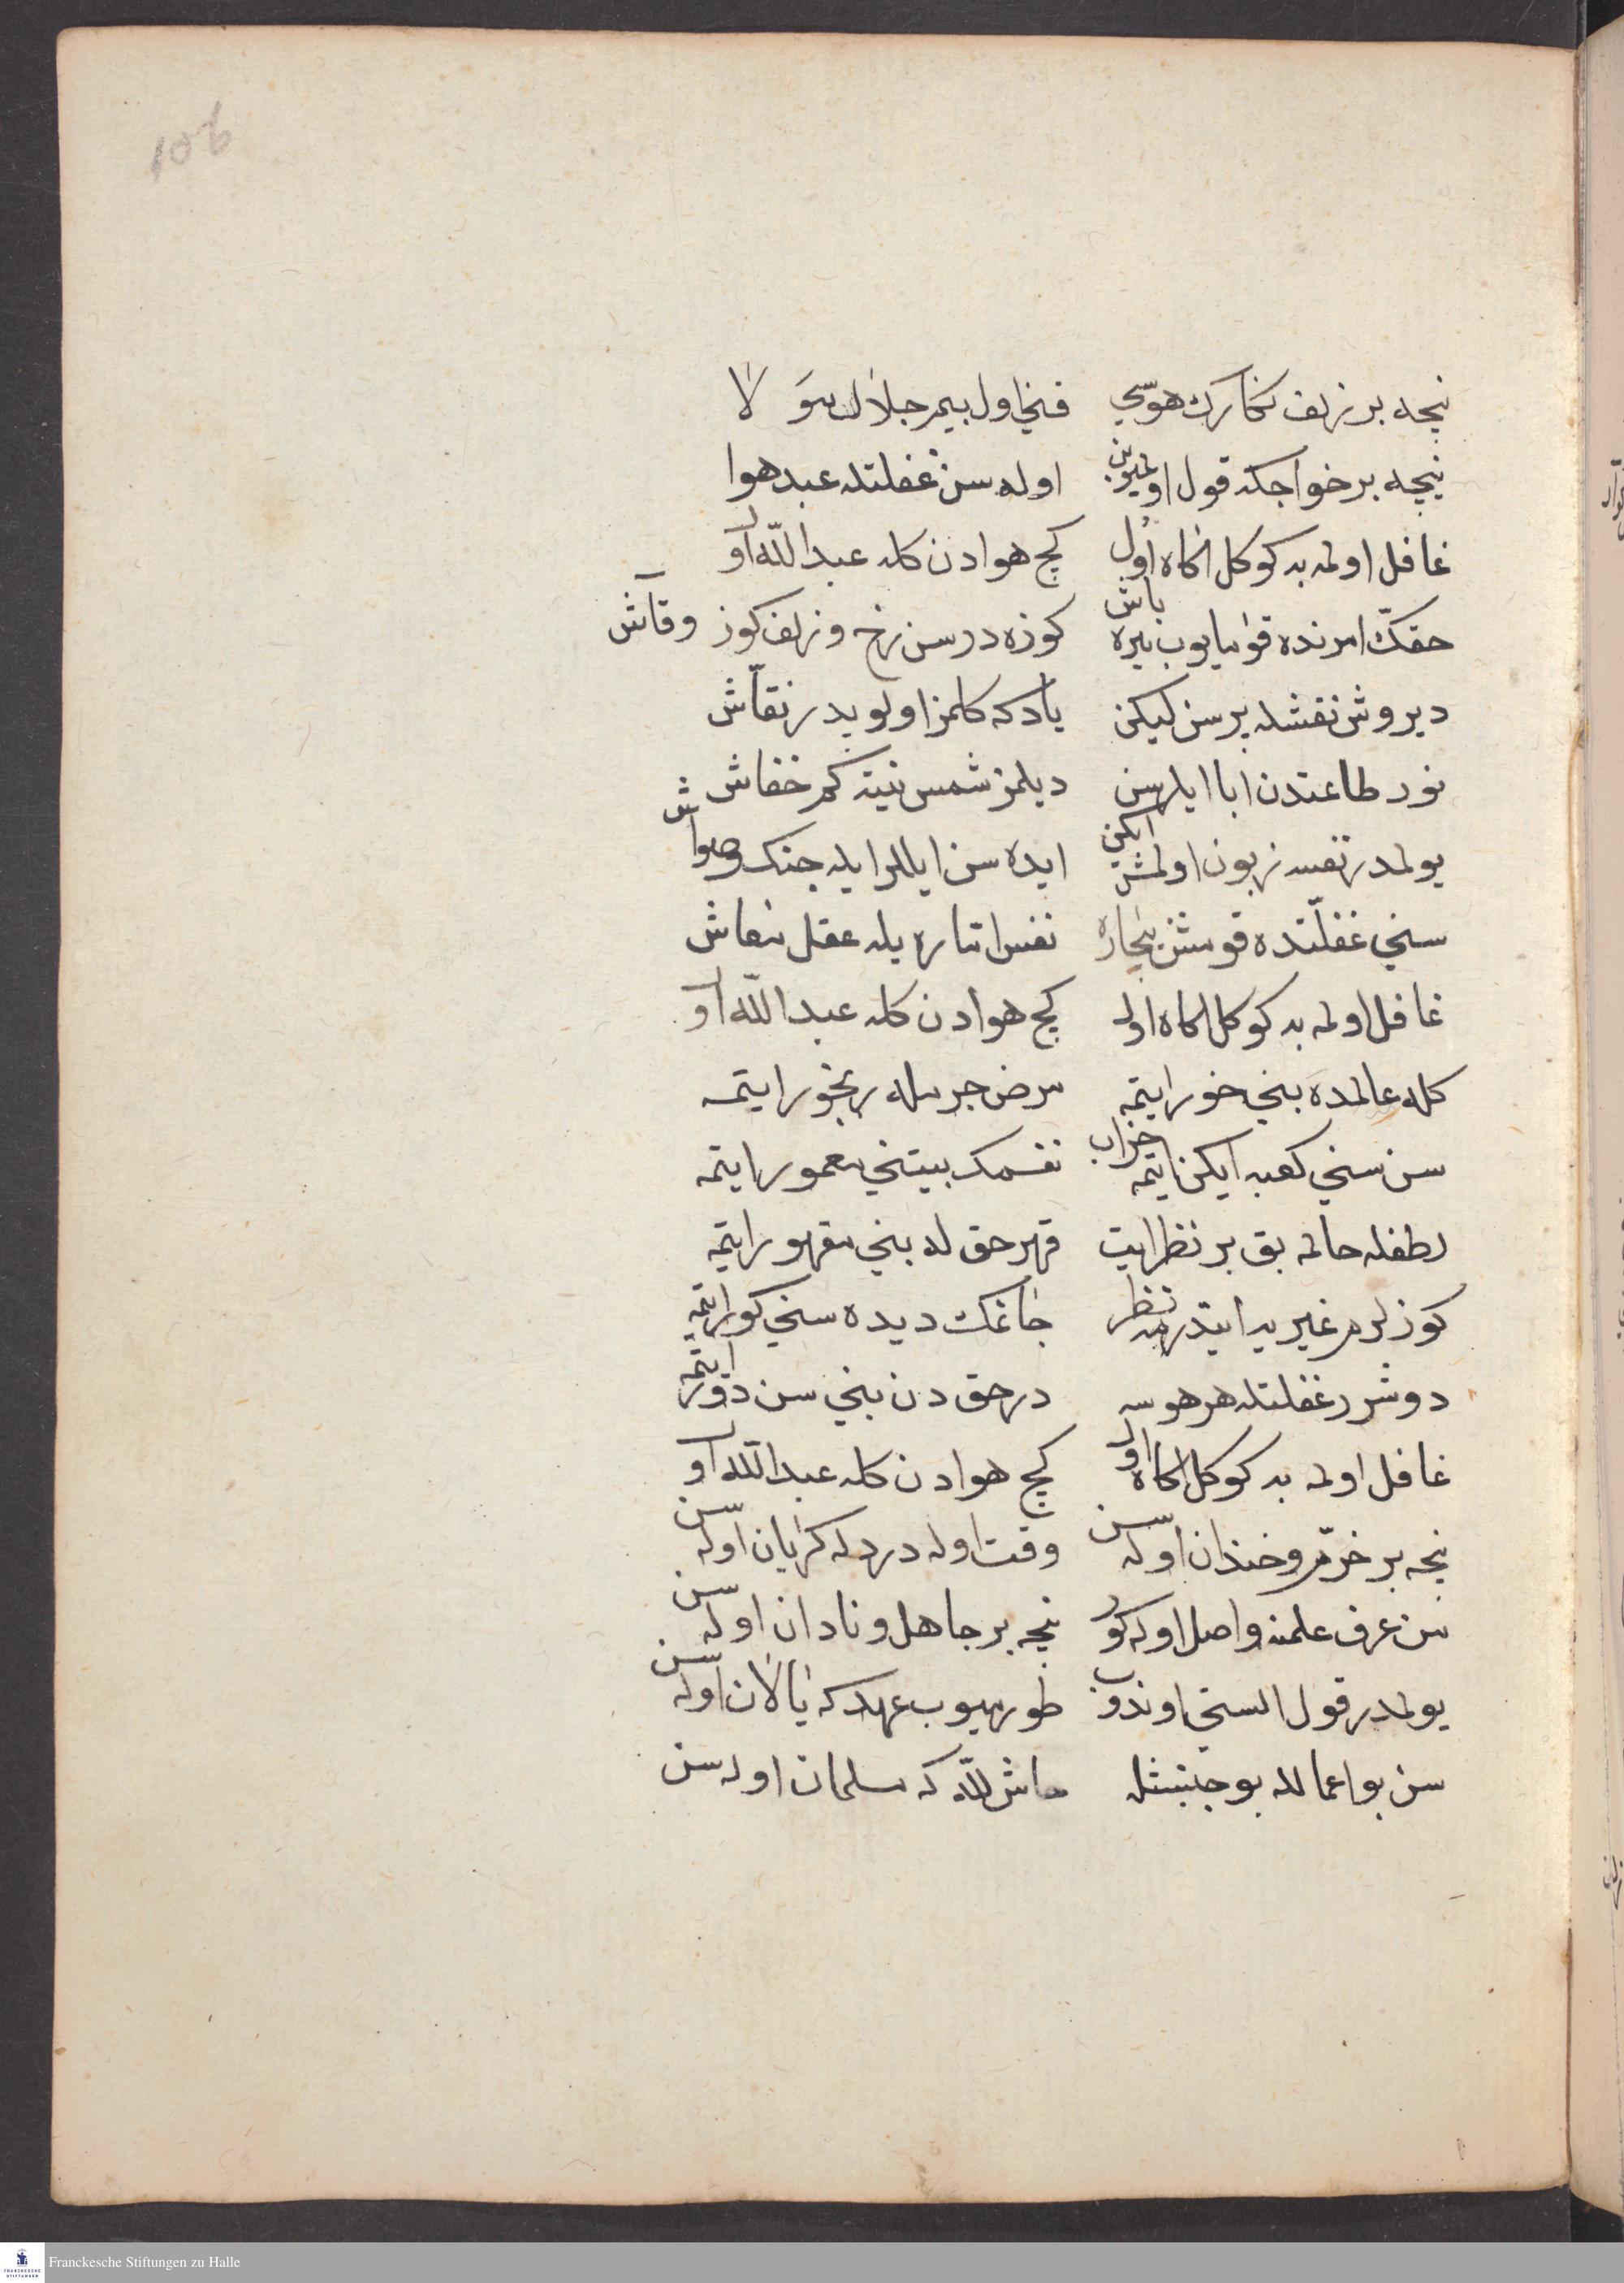 106
نیجه بر زلف نكارك هوسی فنی اول بیمر جلال مولا
نیجه بر خواجكه قول اولمیوبن اوله سن غفلتله عبد هوا
غافل اولمه بد كوكل اكاه اول كچ هوادن كله عبد اللّه اول
حقك امرنده قو یوب یره باش كوزه در سن رخ و زلف كوز و قاش
دیر وش نقشله بر سن لیكن یادكه كلمز اولو بدر نقاش
نور طاعتدن ابا ایلر سن دیلمز شمس نیته كم خفاش
یولمدر نفسه زبون اولمش ایكن ایده سن ایللر ایله جنك و صواش
سنی غفلتده قومش بیچاره نفس اتاره یله عقل معاش
غافل اولمه بد كوكل اكاه اول كچ هوادن كله عبد اللّه اول
كله عالمده بنی خور ایتمه مرض جرمله رنجور ایتمه
سن سنی كعبه ایكن خراب ایتمه نفسك بیتنی معمور ایتمه
لطفله حالمه بق بر نظر ایت قهر حق له بنی مقهور ایتمه
كوزلرم غیریه ایتدرمه نظر جانك دیده سنی كور ایتمه
دوشرر غفلتله هر هوسه در حق دن بنی سن دور ایتمه
غافل اولمه بد كوكل اكاه اول كچ هوادن كله عبد اللّه اول
نیجه بر خرّم و خندان اوله سن وقت اوله درد له كریان اوله سن
من عرف علمنه واصل اوله كور نیجه بر جاهل و نادان اوله سن
یولمدر قول الستی اوندوب طورمیوب عهدكه یالان اوله سن
سن بو اعمالله بو جنبشله حاش للّه كه مسلمان اوله سن
Franckesche Stiftungen zu Halle